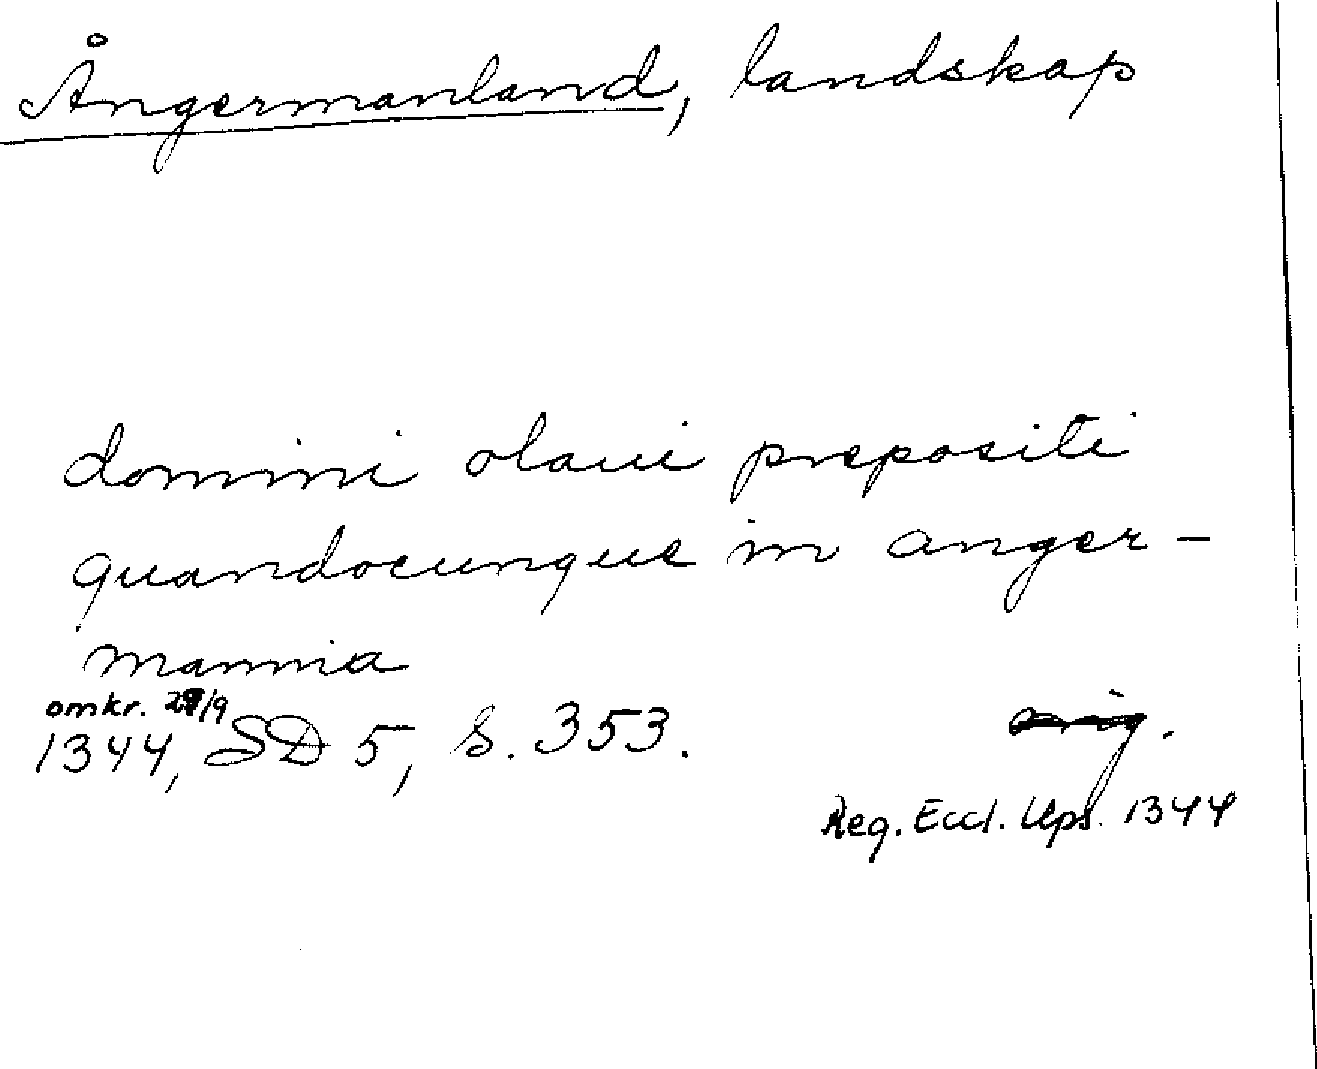 Ångermanland, landskap
domini olaui prepositi
quandocunque in anger-
mannia
omkr. 29/9
1344, SD 5, S. 353.
orig.
Reg. Eccl. Ups. 1344